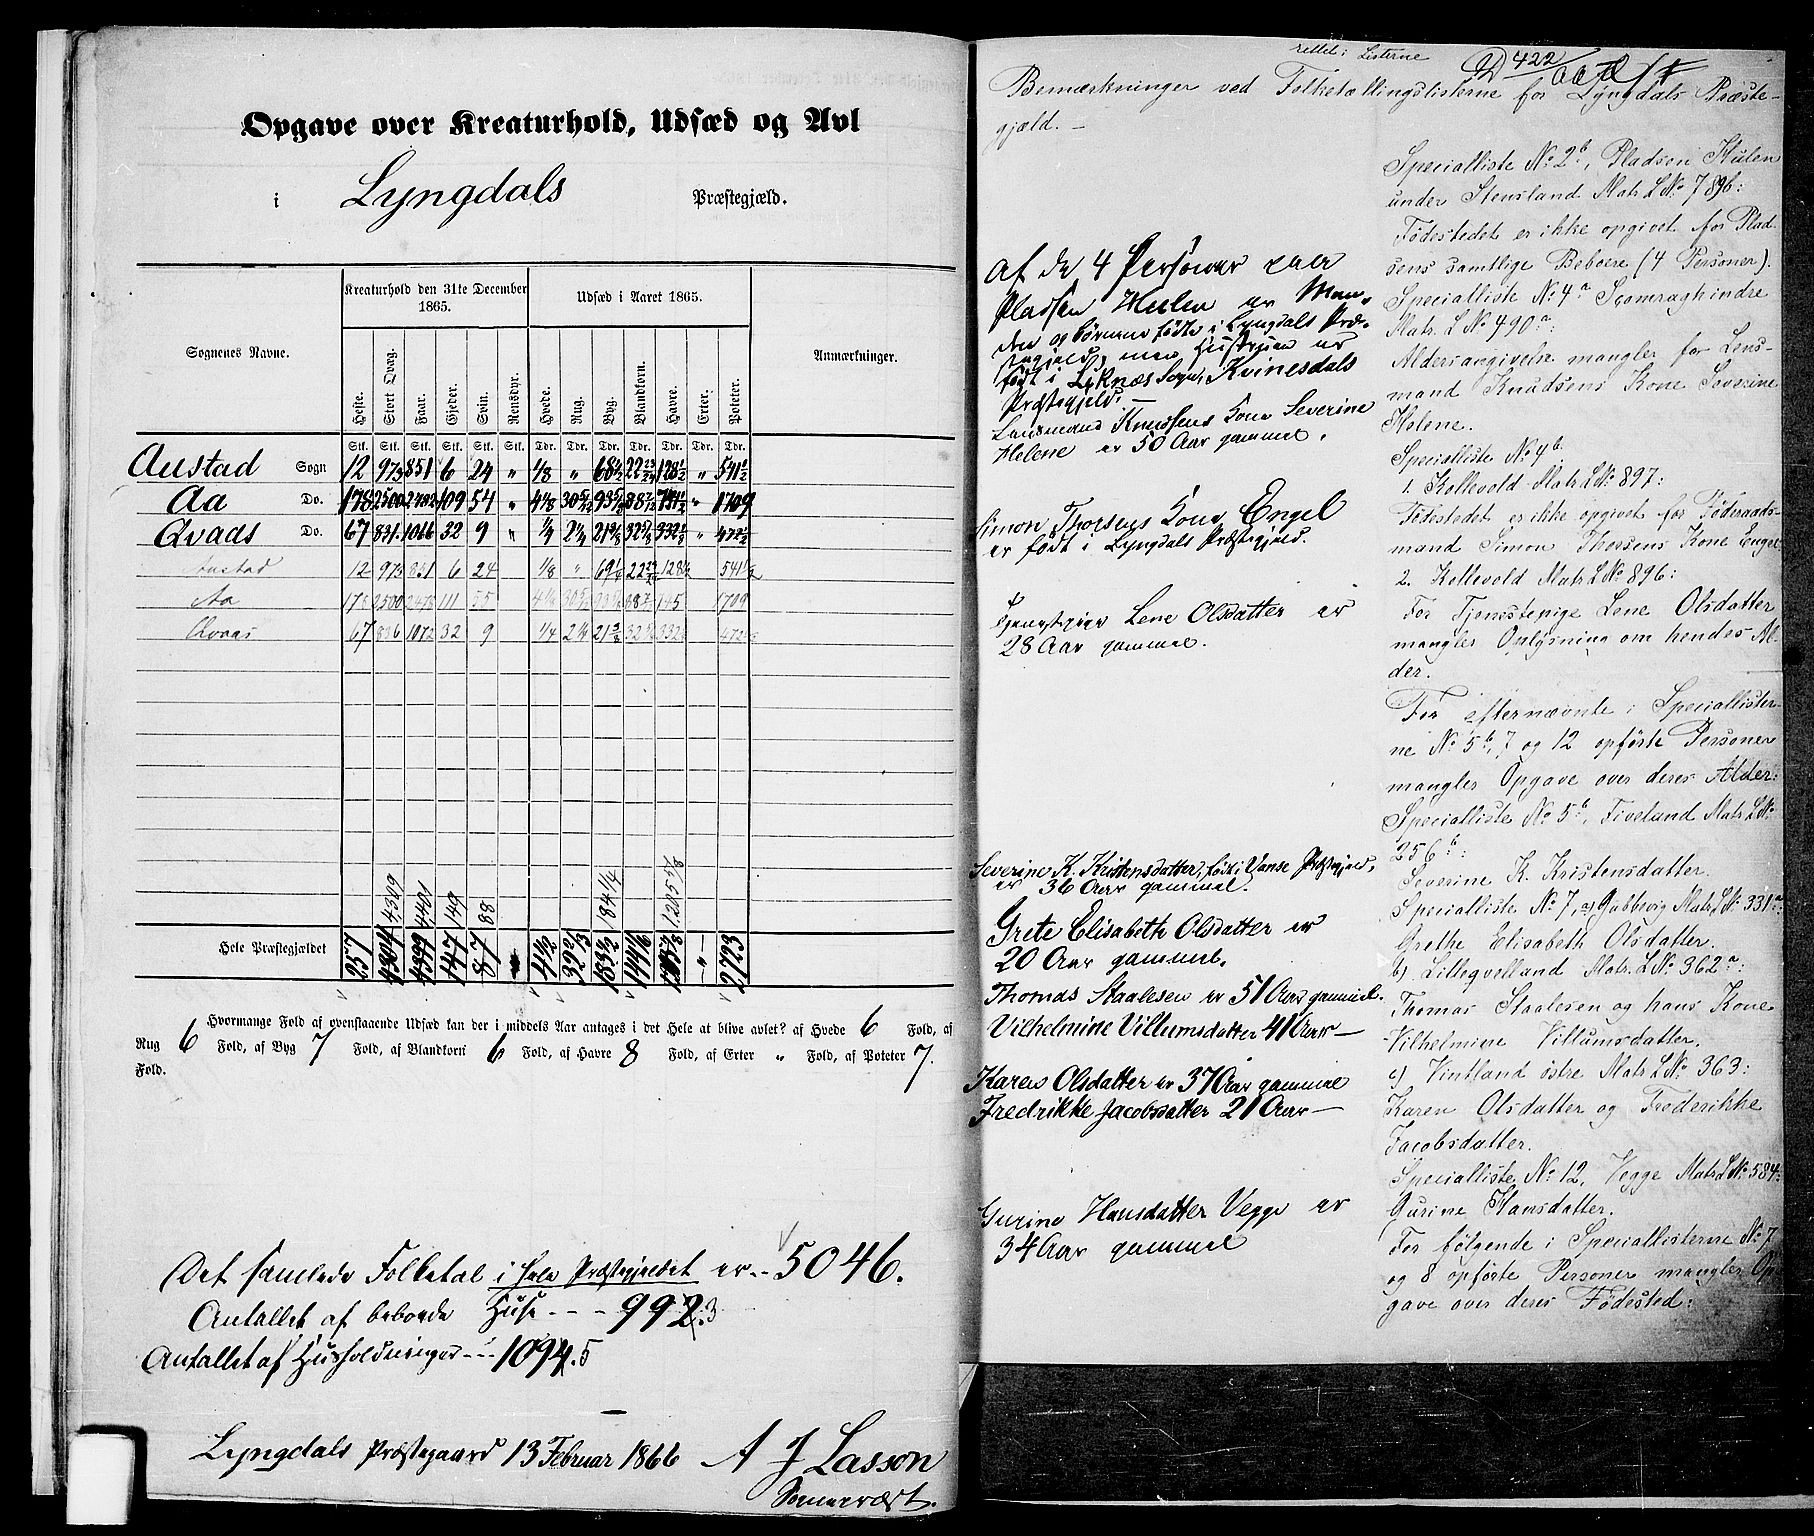 Opgave over Kreaturhold, Udsæd og Avl
i Lyngdals Præstegjæld.
Sognenes Navne.
Kreaturhold den 31te December 1865.
Udsæd i Aaret 1865.
Anmærkninger.
Heste. Stort Qvæg. Faar. Gjeder. Svin. Rensdyr. Hvede. Rug. Byg. Blandkorn. Havre. Erter. Poteter.
Stk. Stk. Stk. Stk. Stk. Stk. Tdr. Tdr. Tdr. Tdr. Tdr. Tdr. Tdr.
Austad Sogn 12 973 851 6 24 " 1/8 " 68 1/2 22 23/24 128 1/2 " 541 1/2
Aa Do. 178 2500 2482 109 54 " 4 1/8 30 5/12 93 5/8 88 7/12 " 1709
Qvads Do. 67 831 1066 32 9 " 1/4 2 1/4 21 3/8 32 5/8 332 1/2 " 472 1/2
Austad 12 973 851 6 24 1/8 " 69 1/4 22 23/24 128 1/2 541 1/2
Aa 178 2500 2478 111 55 4 1/8 30 5/12 745 1709
Qvaas 67 836 1072 32 9 1/4 2 1/4 21 3/8 32 5/8 332 472
4309 4401 149 88 184 1/4 1205 5/8
Hele Præstegjældet 257 4304 4399 147 87 4 1/2 32 2/3 183 1/2 144 1/6 " 2723
Hvormange Fold af ovenstaaende Udsæd kan der i middels Aar antages i det Hele at blive avlet? af Hvede 6 Fold, af
Rug 6 Fold, af Byg 7 Fold, af Blandkorn 6 Fold, af Havre 8 Fold, af Erter " Fold, af Poteter 7.
Fold.
Det samlede Folketal i hele Præstegjældet er -- 5046.
Antallet af beboede Huse --- 992.3
Antallet af Husholdninger --- 1094.5
Lyngdals Præstegaard 13 Februar 1866 A J Lasson
Sognepræst.
rettet i Listerne
422
Bemærkninger ved Folketællingslisterne for Lyngdals Præste-
gjæld. –
Af de 4 Personer paa
Pladsen Hulen er Man-
den og børnene fødte i Lyngdals Præ-
stegjeld, men Hustruen er
født i Lyknæs Sogn, Kvinesdals
Præstegjeld. –
Lensmand Knudsens Kone Severine
Helene er 50 Aar gammel.
Simon Thorsens Kone Engel
er født i Lyngdals Præstegjæld.
Tjenestepige Lene Olsdatter er
28 Aar gammel.
Severine K. Kristensdatter, født i Vanse Præstegjeld,
er 36 Aar gammel.
Grete Elisabeth Olsdatter er
20 Aar gammel.
Thomas Staalesen er 51 Aar gammel.
Vilhelmine Villumsdatter 41 Aar –
Karen Olsdatter er 37 Aar gammel
Fredrikke Jacobsdatter 21 Aar –
Gurine Hansdatter Vegge er
34 Aar gammel
Specialliste No 2b, Pladsen Hulen
under Stensland Matr. L No 789b:
Fødestedet er ikke opgivet for Plad
sens samtlige Beboere (4 Personer).
Specialliste No 4a Skomraghindre
Matr. L No 490a:
Aldersangivelse mangler for Lens-
mand Knudsens Kone Severine
Helene.
Specialliste No 4b.
1. Kollevold Matr L No 897:
Fødestedet er ikke opgivet for Føderaads-
mand Simon Thorsens Kone Engel
2. Kollevold Matr L No 896:
For Tjenestepige Lene Olsdatter
mangler Oplysning om hendes Al-
der.
For efternævnte i Speciallister-
ne No 5b, 7 og 12 opførte Personer
mangler Opgave over deres Alder:
Specialliste No 5b, Fiveland Matr L No
256b:
Severine K. Kristensdatter.
Specialliste No 7, a) Gubbevig Matr L No 331a:
Grethe Elisabeth Olsdatter.
b) Lillegvelland Matr. L No 362a:
Thomas Staalesen og hans Kone
Vilhelmine Villumsdatter.
c) Vintland østre Matr L No 363:
Karen Olsdatter og Frederikke
Jacobsdatter.
Specialliste No 12, Vegge Matr L No 584:
Gurine Hansdatter.
For følgende i Speciallisterne No 7
og 8 opførte Personer mangler Op
gave over deres Fødested: